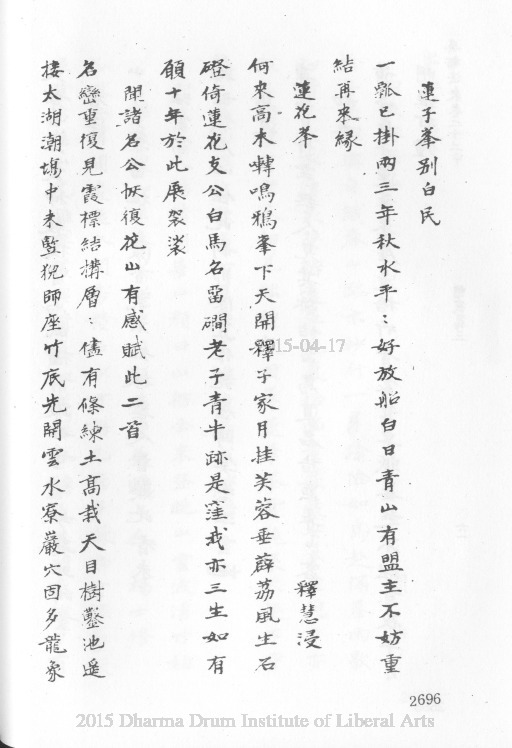 蓮子峯别白民
一瓢已掛兩三年秋水平：好放船白日青山有盟主不妨重
結再來緣
蓮花峯　釋慧浸
何來高木轉鳴鴉峯下天開釋子家月挂芙蓉垂薜荔風生石
磴倚蓮花支公白馬名留磵老子青牛跡是窪我亦三生如有
願十年於此展袈裟
聞諸名公恢復花山有感賦此二首
名巒重復見霞標結構層：儘有條練土高栽天目樹鑿池遥
接太湖潮塲中未豎猊師座竹底先開雲水寮巖穴固多龍象
2015-04-17
2696
2015 Dharma Drum Institute of Liberal Arts